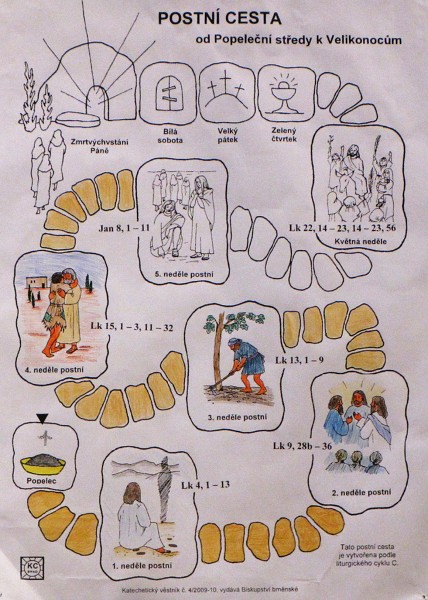 POSTNÍ CESTA
od Popeleční středy k Velikonocům
Zmrtvýchvstání
Páně
Bílá
sobota
Velký
pátek
Zelený
čtvrtek
Jan 8, 1 – 11
Lk 22, 14 – 23, 14 – 23, 56
Květná neděle
5. neděle postní
Lk 15, 1 – 3, 11 – 32
Lk 13, 1 – 9
4. neděle postní
3. neděle postní
Lk 9, 28b – 36
Popelec
Lk 4, 1 – 13
2. neděle postní
1. neděle postní
Tato postní cesta
je vytvořena podle
liturgického cyklu C.
KC
Katechetický věstník č. 4/2009-10, vydává Biskupství brněnské